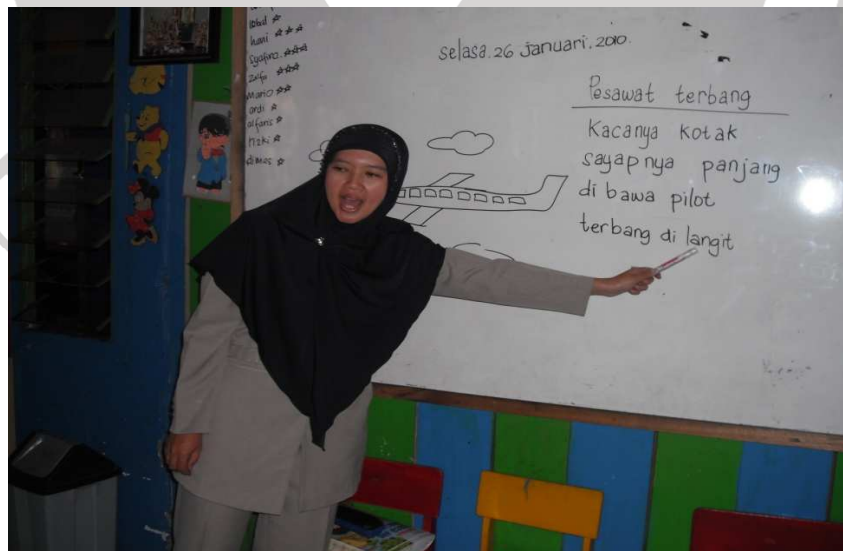 hani
Syafino
Zulfa
Mario
ardi
alfaris
rizki
dimas
selasa. 26 Januari. 2010.
Pesawat terbang
Kacanya kotak
sayapnya panjang
di bawa pilot
terbang di langit